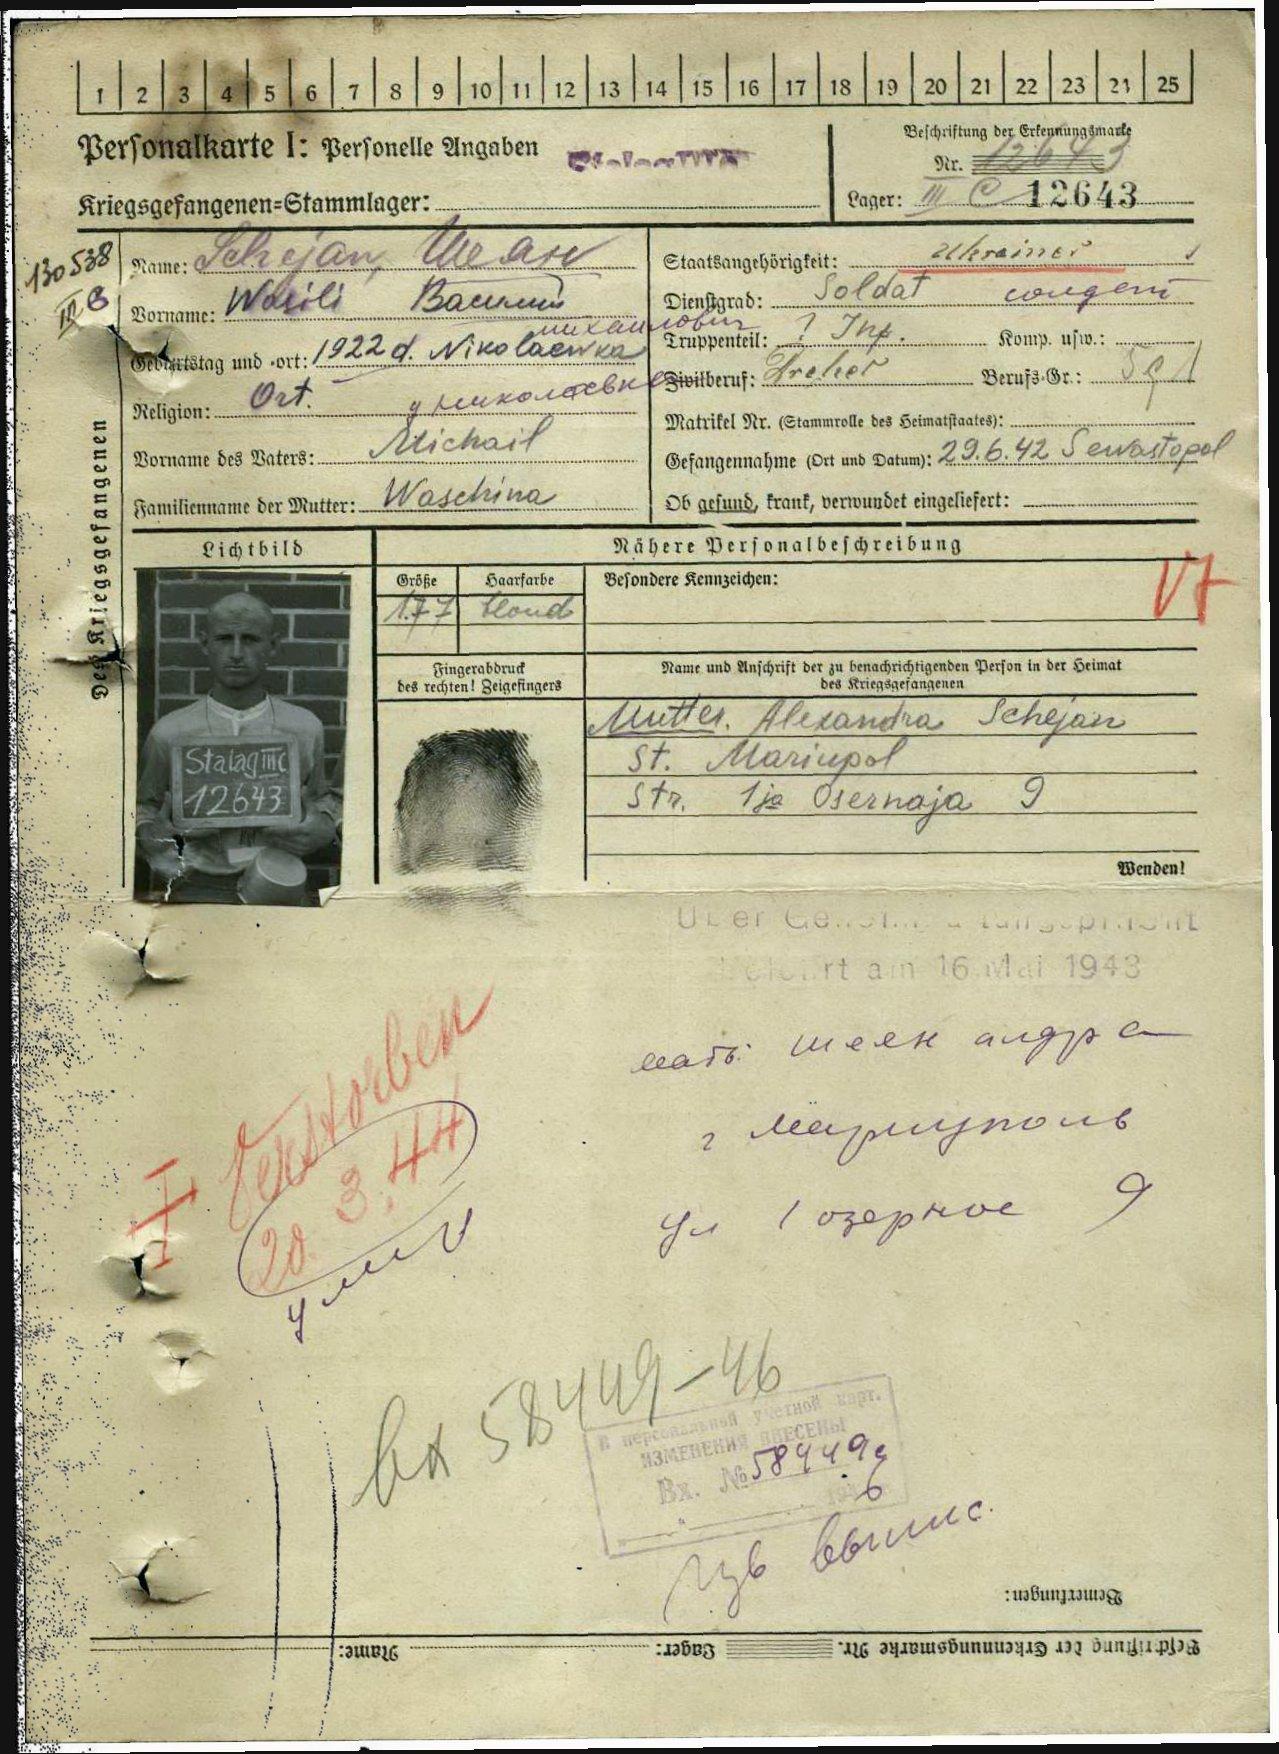 1 2 3 4 5 6 7 8 9 10 11 12 13 14 15 16 17 18 19 20 21 22 23 24 25
Personalkarte I: Personelle Angaben
Kriegsgefangenen-Stammlager:
Beschriftung der Erkennungsmarke
Nr. 12643
Lager: III C 12643
130538
III B
Des Kriegsgefangenen
Name: Schejan, Шеян
Vorname: Wasili Василий
михайлович
Geburtstag und -ort: 1922 d. Nikolaewka
Religion: Ort. д николаевка
Vorname des Vaters: Michail
Familienname der Mutter: Waschina
Staatsangehörigkeit: Ukrainer
Dienstgrad: Soldat солдат
Truppenteil: ? Inf. Komp. usw.:
Zivilberuf: Dreher Berufs-Gr.:
Matrikel Nr. (Stammrolle des Heimatstaates):
Gefangennahme (Ort und Datum): 29.6.42 Sewastopol
Ob gesund, krank, verwundet eingeliefert:
Lichtbild
Nähere Personalbeschreibung
Größe Haarfarbe Besondere Kennzeichen:
1.77 blond
Fingerabdruck
des rechten! Zeigefingers
Name und Anschrift der zu benachrichtigenden Person in der Heimat
des Kriegsgefangenen
Mutter. Alexandra Schejan
St. Mariupol
Str. 1ja Osernaja 9
Stalag III C
12643
Wenden!
Über
am 16. Mai 1943
мать: шеян
г мариуполь
ул 1 озерное 9
Verstorben
20. 3. 44
умер
вх 58449-46
В персональной учетной карт.
ИЗМЕНЕНИЯ ВНЕСЕНЫ
Вх. № 58449
Bemerkungen:
Beschriftung der Erkennungsmarke Nr. Lager: Name: